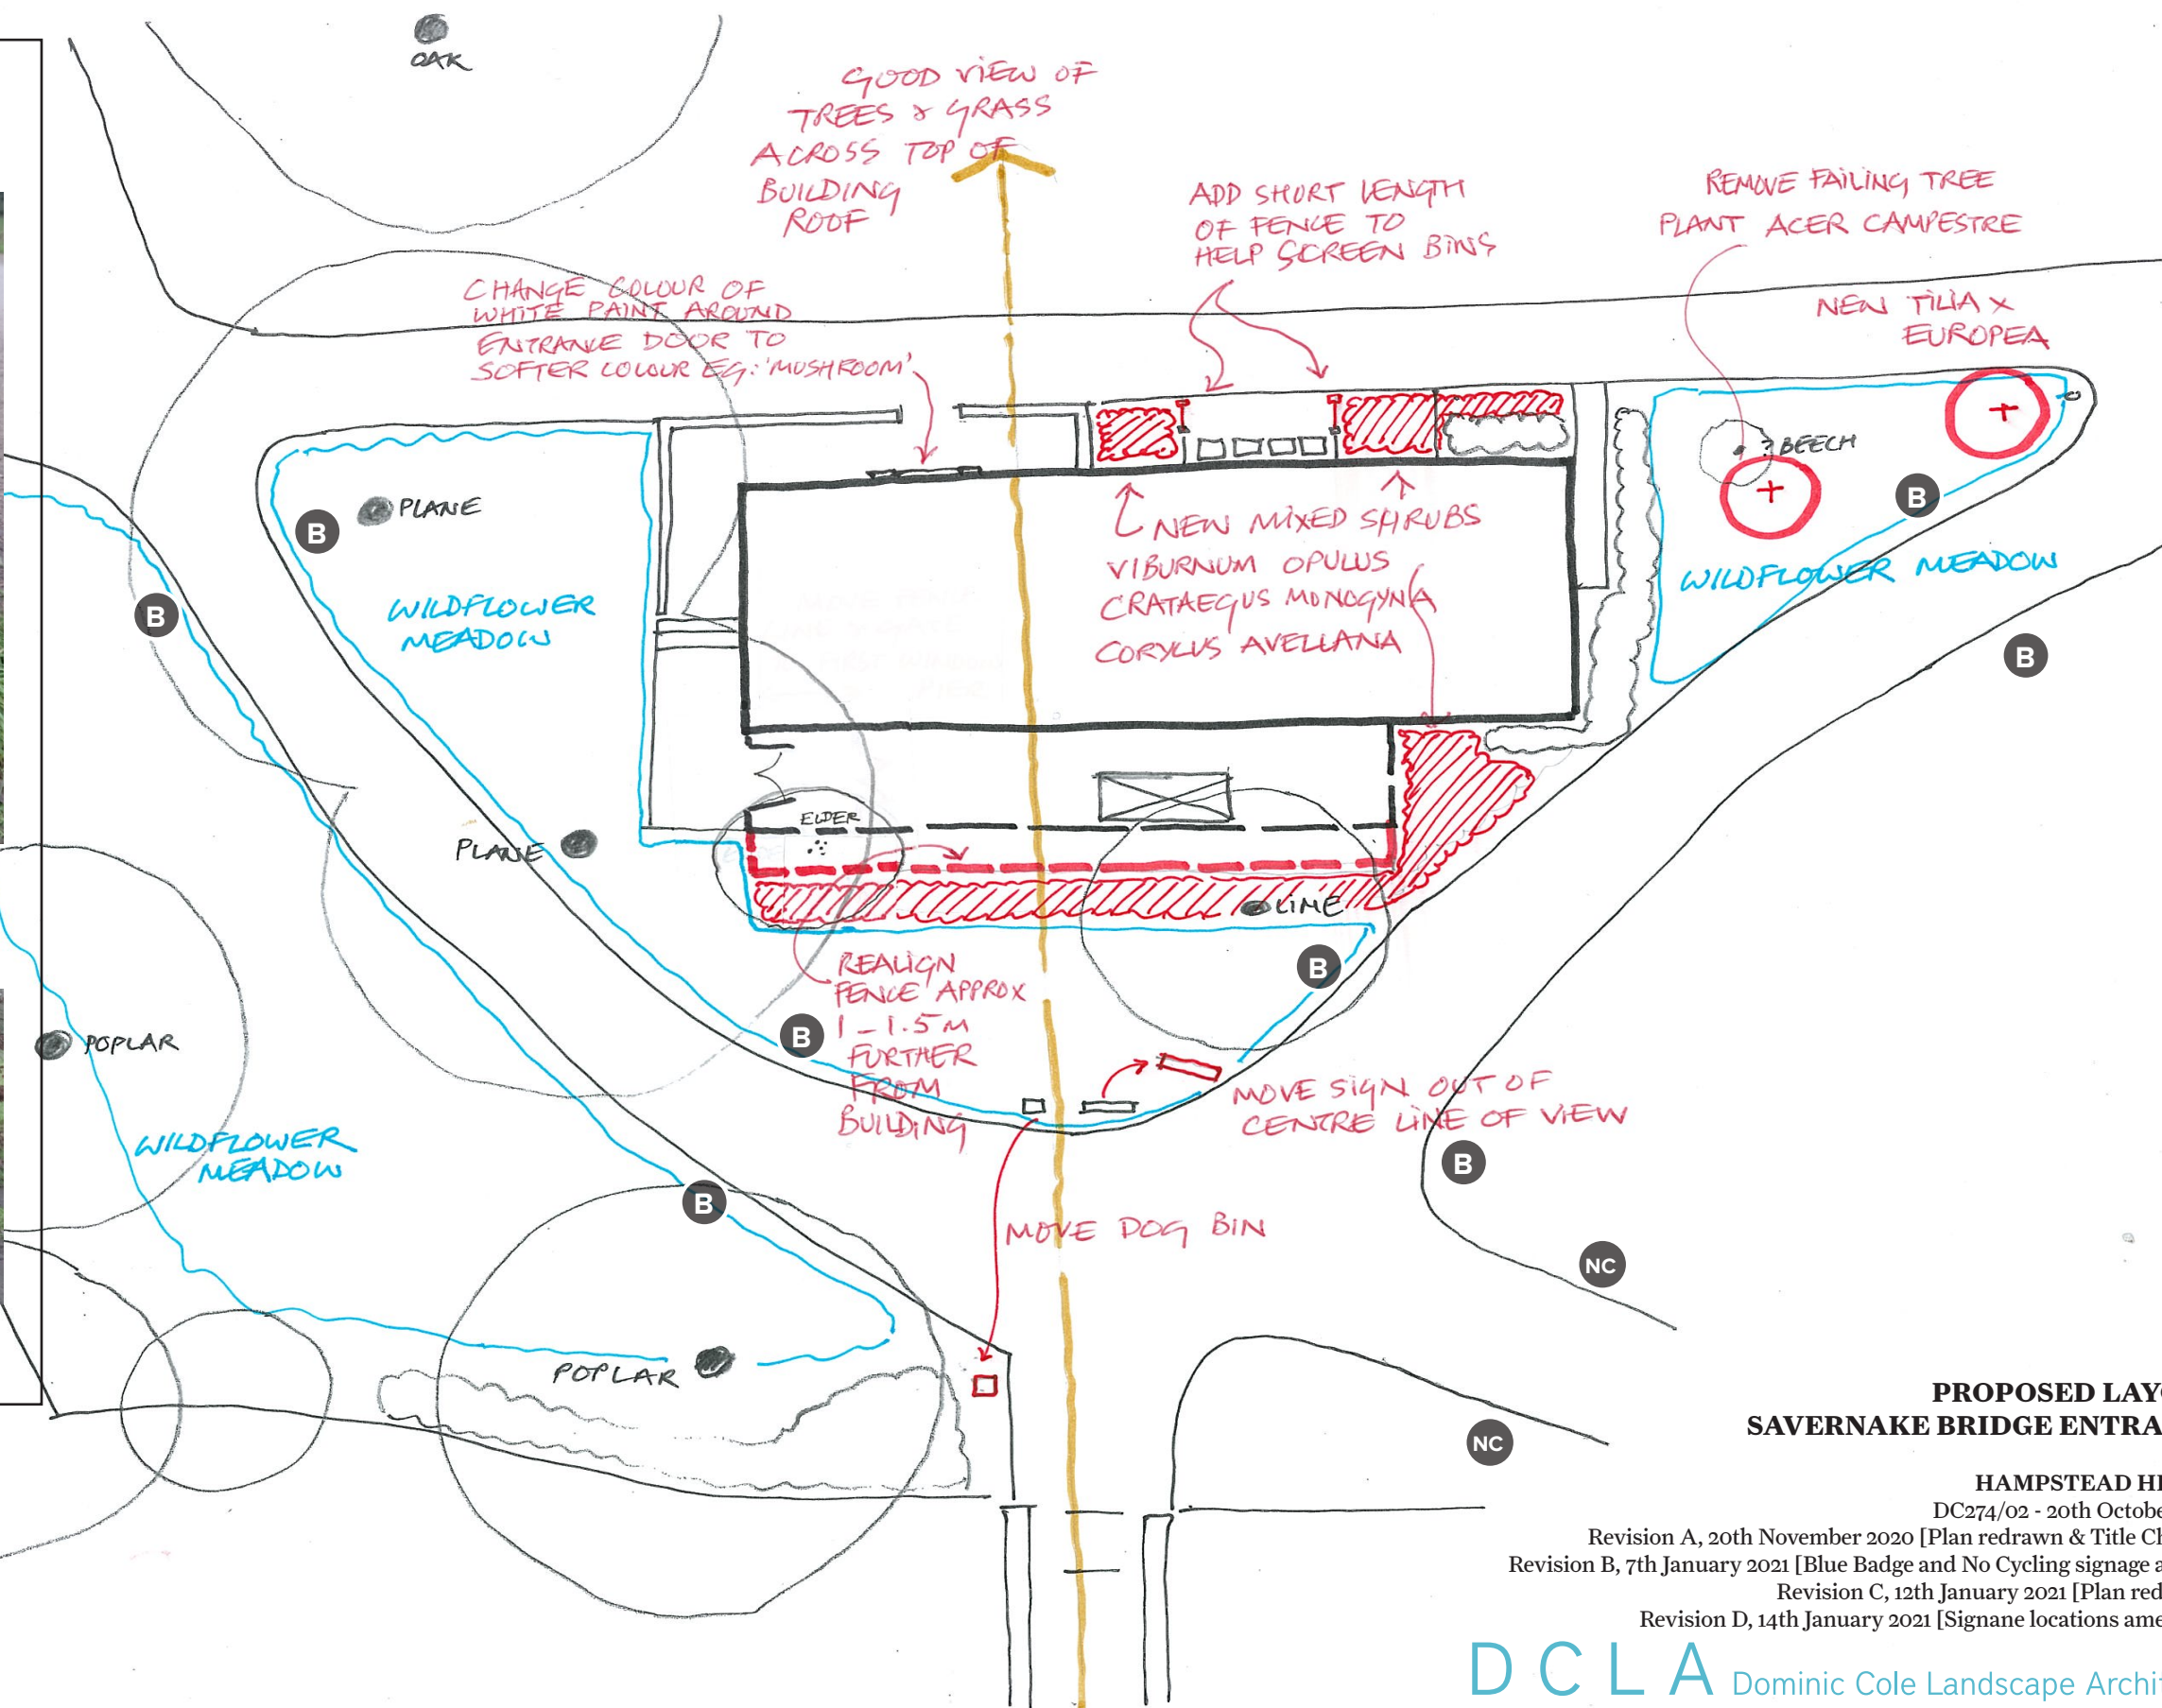 OAK
GOOD VIEW OF
TREES & GRASS
ACROSS TOP OF
BUILDING
ROOF
ADD SHORT LENGTH
OF FENCE TO
HELP SCREEN BINS
REMOVE FAILING TREE
PLANT ACER CAMPESTRE
CHANGE COLOUR OF
WHITE PAINT AROUND
ENTRANCE DOOR TO
SOFTER COLOUR EG: 'MUSHROOM'
NEW TILIA X
EUROPEA
? BEECH
B
PLANE
B
B
WILDFLOWER
MEADOW
NEW MIXED SHRUBS
VIBURNUM OPULUS
CRATAEGUS MONOGYNA
CORYLUS AVELLANA
WILDFLOWER MEADOW
B
ELDER
PLANE
LIME
B
REALIGN
FENCE APPROX
1 - 1.5M
FURTHER
FROM
BUILDING
B
POPLAR
MOVE SIGN OUT OF
CENTRE LINE OF VIEW
WILDFLOWER
MEADOW
B
B
MOVE DOG BIN
NC
POPLAR
NC
PROPOSED LAY
SAVERNAKE BRIDGE ENTRA
HAMPSTEAD HE
DC274/02 - 20th Octobe
Revision A, 20th November 2020 [Plan redrawn & Title Ch
Revision B, 7th January 2021 [Blue Badge and No Cycling signage a
Revision C, 12th January 2021 [Plan red
Revision D, 14th January 2021 [Signane locations ame
DCLA Dominic Cole Landscape Archi